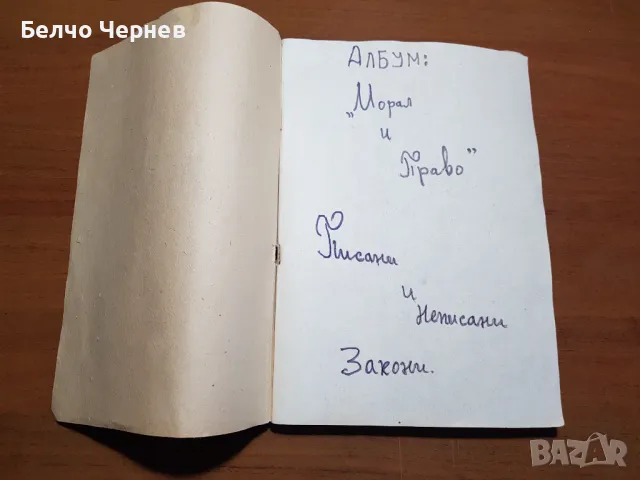 Белчо Чернев
АЛБУМ:
„Морал
и
Право"
Писани
и
Неписани
Закони.
BAZAR